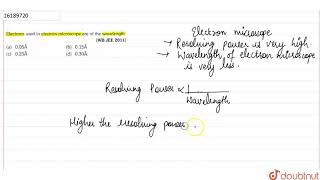 16189720
Electrons used in electron microscope are of the wavelength
(WB JEE 2011)
(a) 0.05Å (b) 0.15Å
(c) 0.25Å (d) 0.30Å
Electron microscope
→ Resolving power is very high.
→ Wavelength of electron microscope
is very less.
Resolving Power ∝ 1
Wavelength
Higher the resolving power,
doubtnut